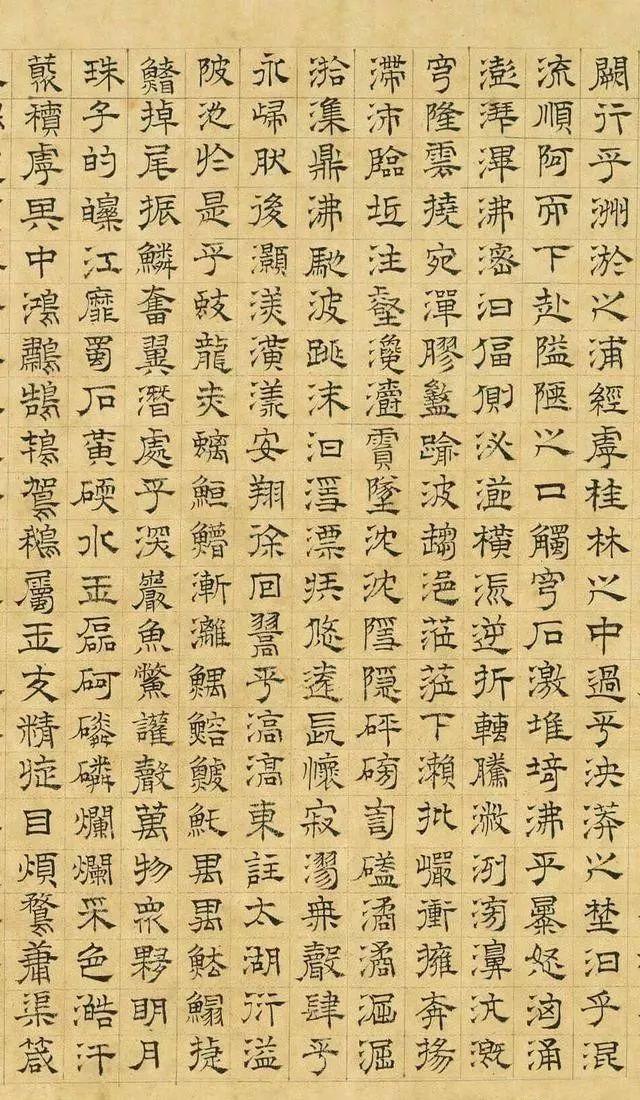 闕行乎洲淤之浦經虖桂林之中過乎泱漭之埜汩乎混
流順阿而下赴隘陿之口觸穹石激堆埼沸乎暴怒洶涌
澎湃滭沸滵汩偪側泌㴔橫流逆折轉騰潎洌滂濞沆溉
穹隆雲撓宛潬膠盭踰波趨浥蒞蒞下瀨批巖衝擁奔揚
滯沛臨坻注壑瀺灂霣墜沈沈隱隱砰磅訇礚潏潏淈淈
湁潗鼎沸馳波跳沫汩㴔漂疾悠遠長懷寂漻無聲肆乎
永歸肰後灝溔潢漾安翔徐回翯乎滈滈東註太湖衍溢
陂池於是乎蛟龍赤螭䱭䲛漸離鰅鰫鰬魠禺禺魼鰨揵
鰭掉尾振鱗奮翼潛處乎深巖魚鱉讙聲萬物衆夥明月
珠子的皪江靡蜀石黃碝水玉磊砢磷磷爛爛采色澔汗
藂積虖其中鴻鷫鵠鴇鴐鵝屬玉交精旋目煩鶩庸渠箴